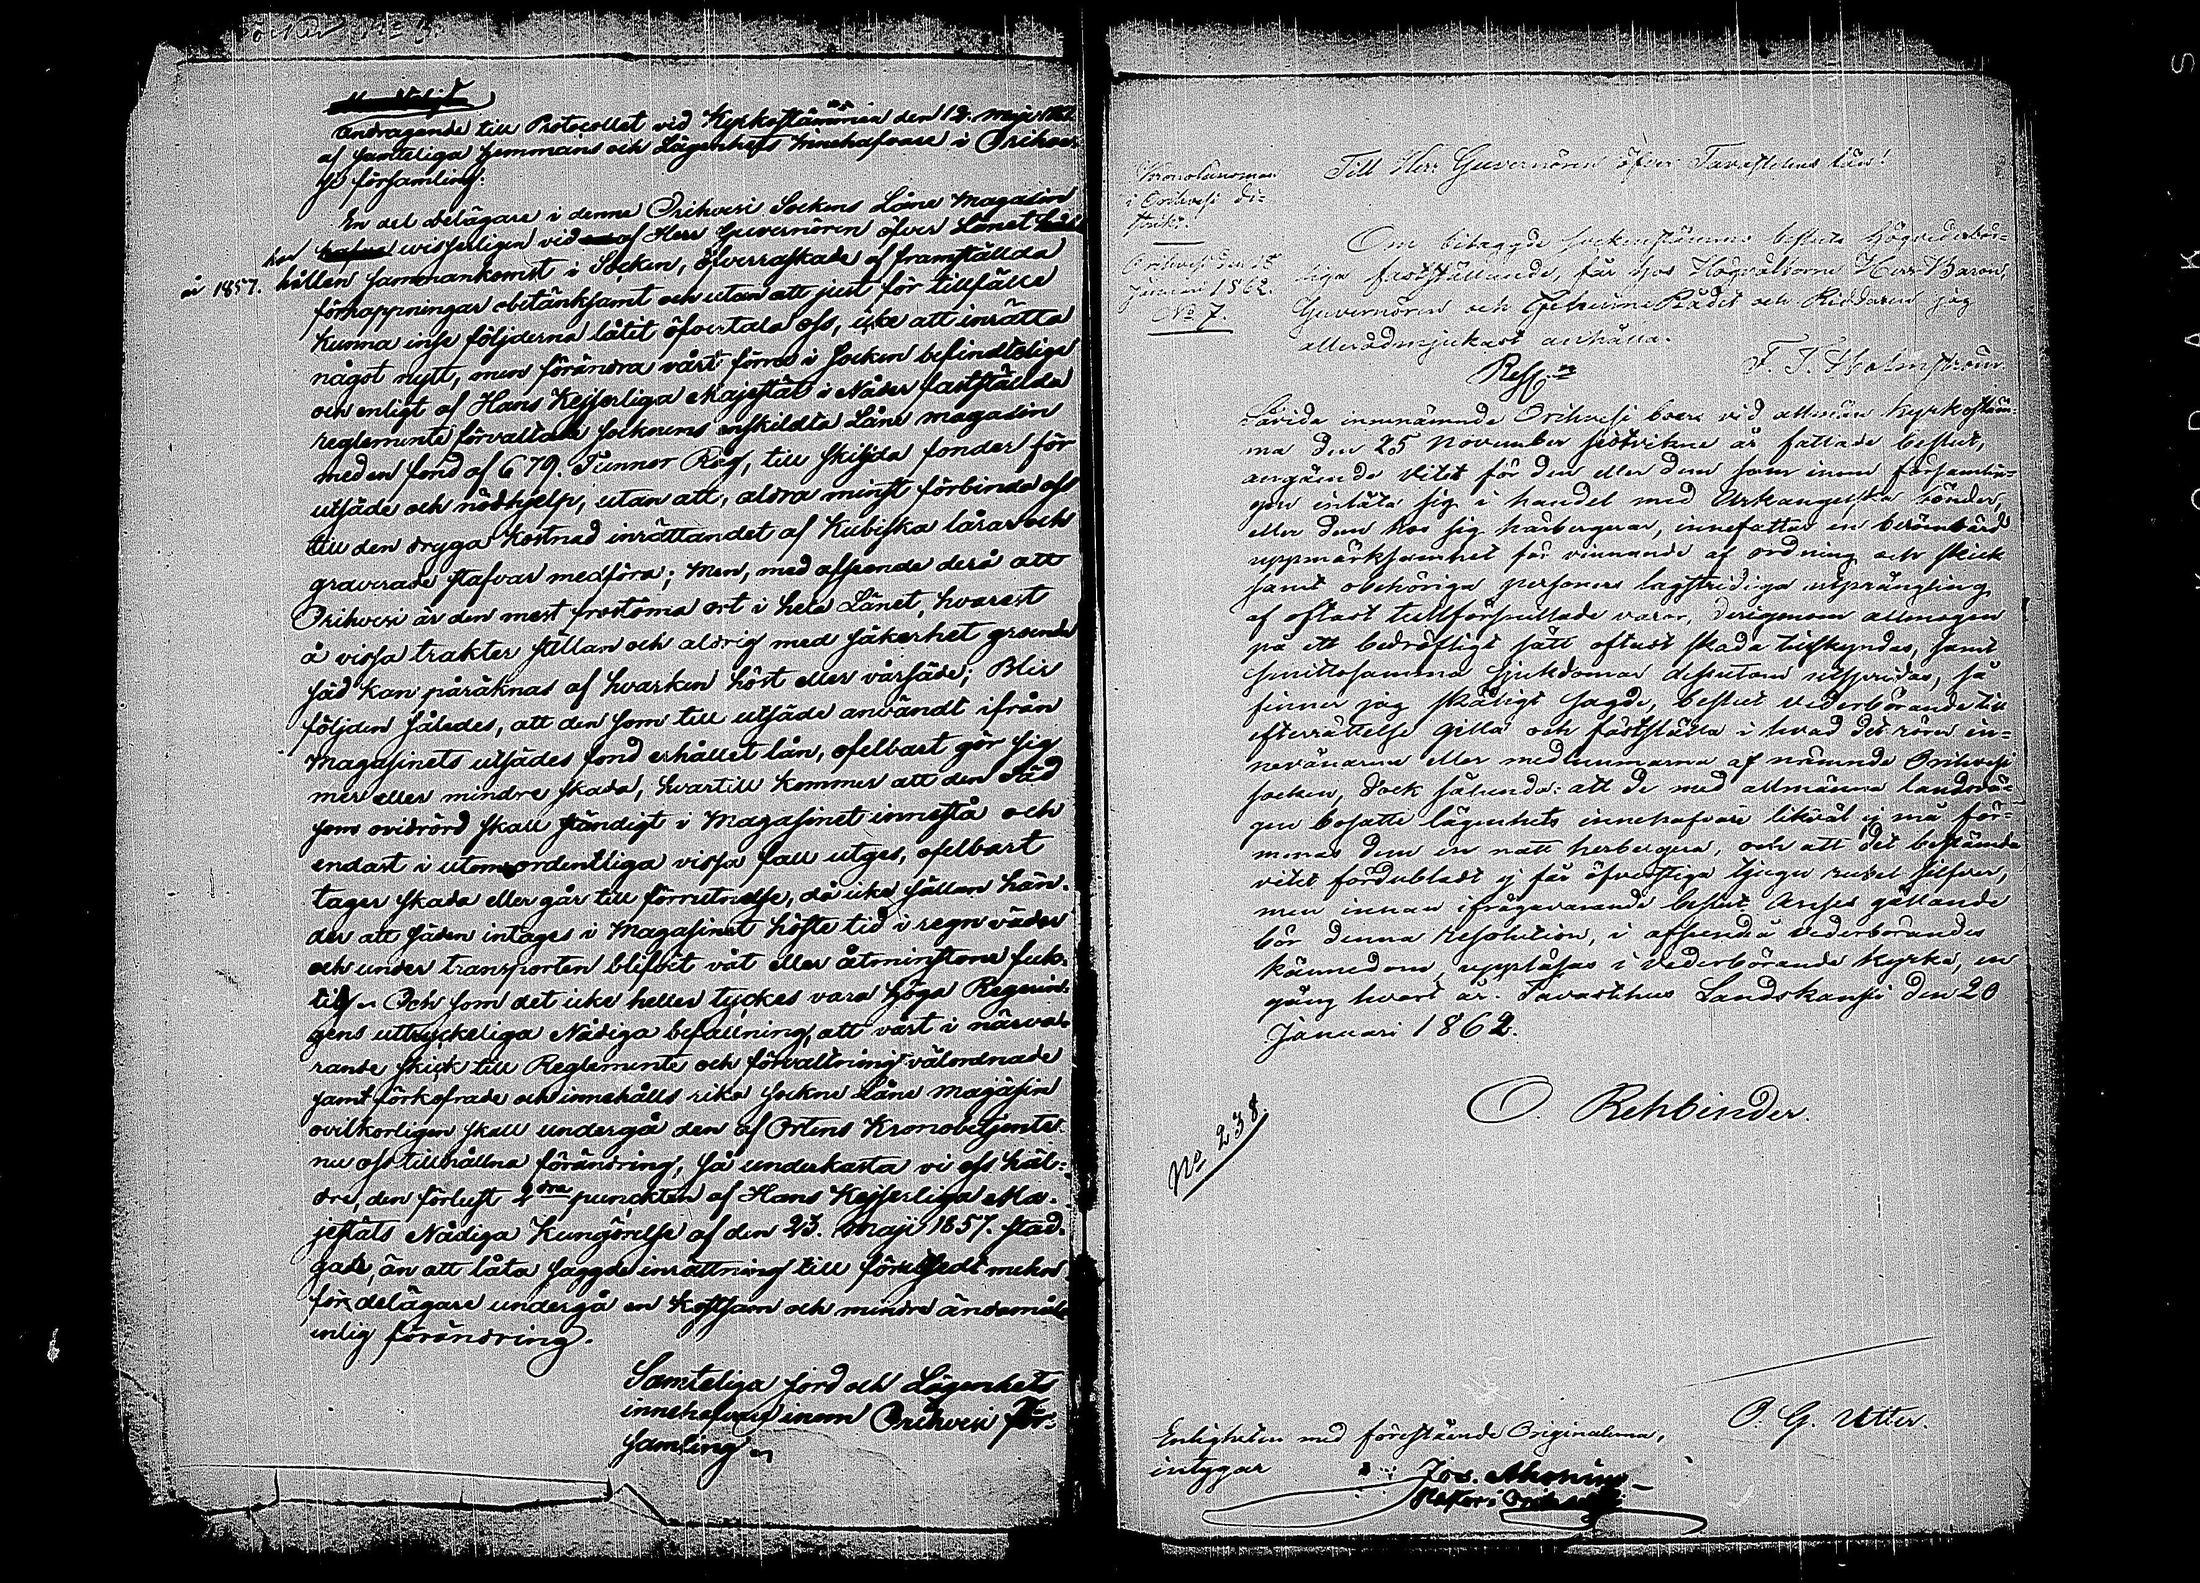 Andragende till Protocollet vid Kyrkostämman den 12. maji
af samteliga hemmans och Lägenhets innehafvare i Orihve-
si församling.
En del delägare i denna Orihvesi Sockens Låne Magasin
visserligen vid af Herr Guvernören öfver Länet
å 1857. hållen sammankomst i Socken, öfverraskade af framställda
förhoppningar obetänksamt och utan att just för tillfälle
kunna inse följderna låtit öfvertala oss, icke att inrätta
något nytt, men förändra vårt förra i socken befindteliga
och enligt af Hans Kejserliga Majestät i Nåder fastställda
reglemente förvaltade socknens enskildta Låne magasin
med en fond af 679. Tunnor Råg, till skilda fonder för
utsäde och nödhjelp, utan att, aldra minst förbinda oss
till den dryga kostnad inrättandet af kubiska lårar och
graverade stafvar medföra; Men, med afseende derå att
Orihvesi är den mest frostömma ort i hela Länet, hvarest
å vissa trakter sällan och aldrig med säkerhet groende
säd kan påräknas af hvarken höst eller vårsäde; Blir
följden således, att den som till utsäde användt ifrån
Magasinets utsädes fond erhållet lån, ofelbart gör sig
mer eller mindre skada, hvartill kommer att den Säd
som orörd skall ständigt i Magasinet innestå och
endast i utomordentliga vissa fall utges, ofelbart
tager skada eller går till förrutnelse, då icke sällan hän-
der att säden intages i Magasinet höste tid i regn väder
och under transporten blifvit våt eller åtminstone fuk-
tig. Och som det icke heller tyckes vara höga Regerin-
gens uttryckeliga Nådiga befallning, att vårt i närva-
rande skick till Reglemente och förvaltning välordnade
samt förkofrade och innehålls rika sockne Låne magasin
ovilkorligen skall undergå den af Ortens Kronobetjente
nu oss tillhållna förändring, så underkasta vi oss häl-
dre, den förlust 2dra punckten af Hans Kejserliga Ma-
jestäts Nådiga Kungörelse af den 23. Maji 1857. stad-
gade, än att låta sagde inrättning till
för delägare undergå en kostsam och mindre ändamåls
enlig förändring.
Samteliga jord och Lägenhets
innehafvare inom Orihvesi för-
samling
Kronolänsman
i Orihvesi di-
strikt.
Orihvesi den 18
Januari 1862.
No 7.
Till Herr Guvernören öfver Tavastehus län!
Om bilagde sockenstämmo besluts högvederbör-
liga fastställande, får hos Högvälborne Herr Baron,
Guvernören och Geheime Rådet och Riddaren jag
allerödmjukast anhålla.
F. T. Holmström
Resol:n
Såvida innenämnde Orihvesi boers vid allmän Kyrkostäm-
ma den 25 November sistvikne år fattade beslut,
angående vitet för den eller dem som inom församlin-
gen inlåta sig i handel med Arkangelska bönder,
eller dem hos sig härbergerar, innefattar en berömvärd
uppmärksamhet för vinnande af ordning och skick
samt obehöriga personers lagstridiga utprångling
af oftast tullförsnillade varor, derigenom allmogen
på ett bedrägligt sätt oftast skada tillskyndas, samt
smittosamma sjukdomar dessutom utspridas, så
finner jag skäligt sagde, beslut vederbörande till
efterrättelse gilla och fastställa i hvad det rörer in-
nevånarne eller medlemmarna af nämnde Orihvesi
socken, dock sålunda: att de med allmänna landsvä-
gen bosatte lägenhets innehafvare likväl ej må för-
menas dem en natt herbergera, och att det bestämda
vitet fördubladt ej får öfverstiga tjugu rubel silfver,
men innan ifrågavarande beslut anses gällande
bör denna resolution, i afseende å vederbörandes
kännedom, uppläsas i vederbörande kyrka, en
gång hvart år. Tavastehus Landskansli den 20
Januari 1862.
O. Rehbinder.
No 238
O. G. Utter.
Enligheten med förestående Originalerna,
intygar
Jos.
KODAK S